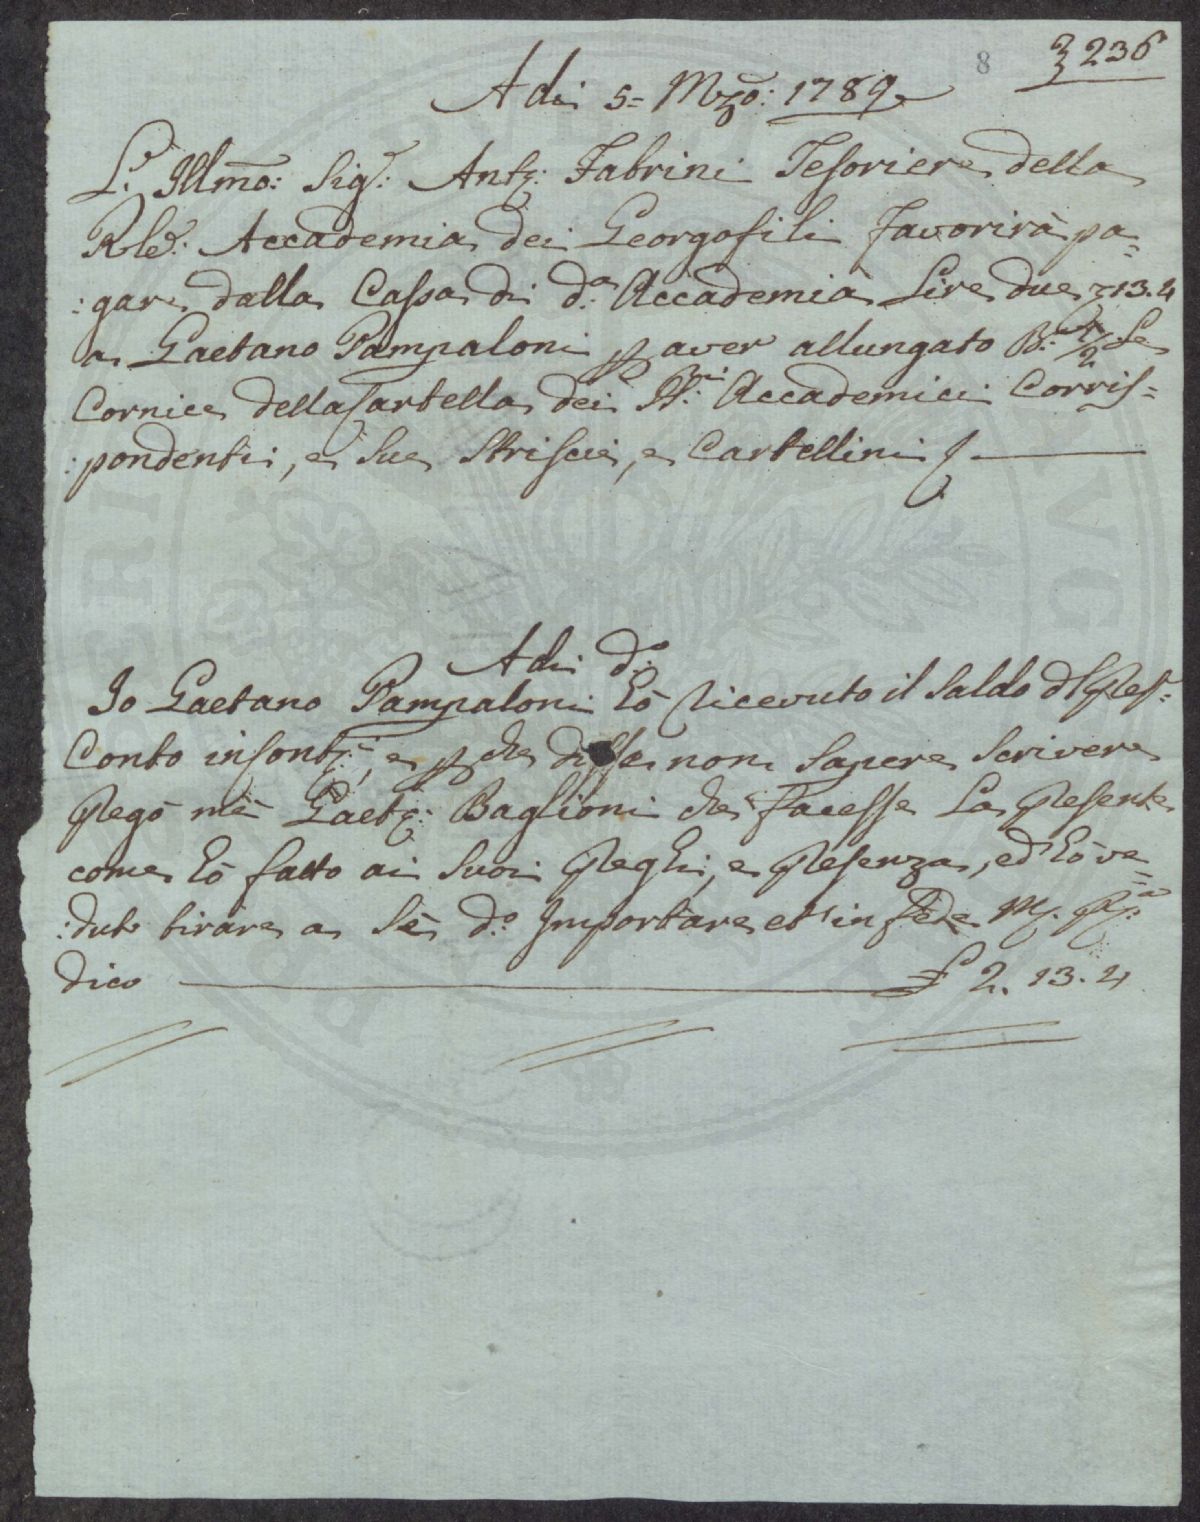 8 236
Adi 5= Mzo: 1789
L'Illmo: Sigr: Anto: Fabrini Tesoriere della
Rle: Accademia dei Georgofili favorirà pa=
:gare dalla Cassa di da: Accademia Lire due 13.4
a Gaetano Pampaloni p aver allungato B: 1/2 Le
Cornice della Cartella dei SSri: Accademici Corris=
:pondenti, e Sue Striscie, e Cartellini
Adi do:
Io Gaetano Pampaloni hò ricevuto il Saldo dl pres=
Conto in conto:, e p che disse non Sapere Scrivere
pregò mè Gaeto: Baglioni che facesse La presente
come hò fatto ai Suoi preghi, e presenza, ed hò ve=
:duto tirare a Sè do: Importare et in fede M. pa:
dico £ 2. 13. 4